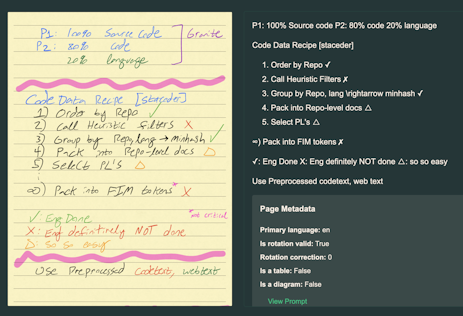 P1: 100% Source Code
P2: 80% code
20% language
Granite
Code Data Recipe [stacoder]
1) Order by Repo ✓
2) Call Heuristic filters X
3) Group by Repo, lang → minhash ✓
4) Pack into Repo-level docs △
5) Select PL's △
∞) Pack into FIM tokens * X
* not critical
✓: Eng Done
X: Eng definitively NOT done
△: so so easy
Use Preprocessed codetext, webtext
P1: 100% Source code P2: 80% code 20% language
Code Data Recipe [staceder]
1. Order by Repo ✓
2. Call Heuristic Filters ✗
3. Group by Repo, lang \rightarrow minhash ✓
4. Pack into Repo-level docs △
5. Select PL's △
∞) Pack into FIM tokens ✗
✓: Eng Done X: Eng definitely NOT done △: so so easy
Use Preprocessed codetext, web text
Page Metadata
Primary language: en
Is rotation valid: True
Rotation correction: 0
Is a table: False
Is a diagram: False
View Prompt